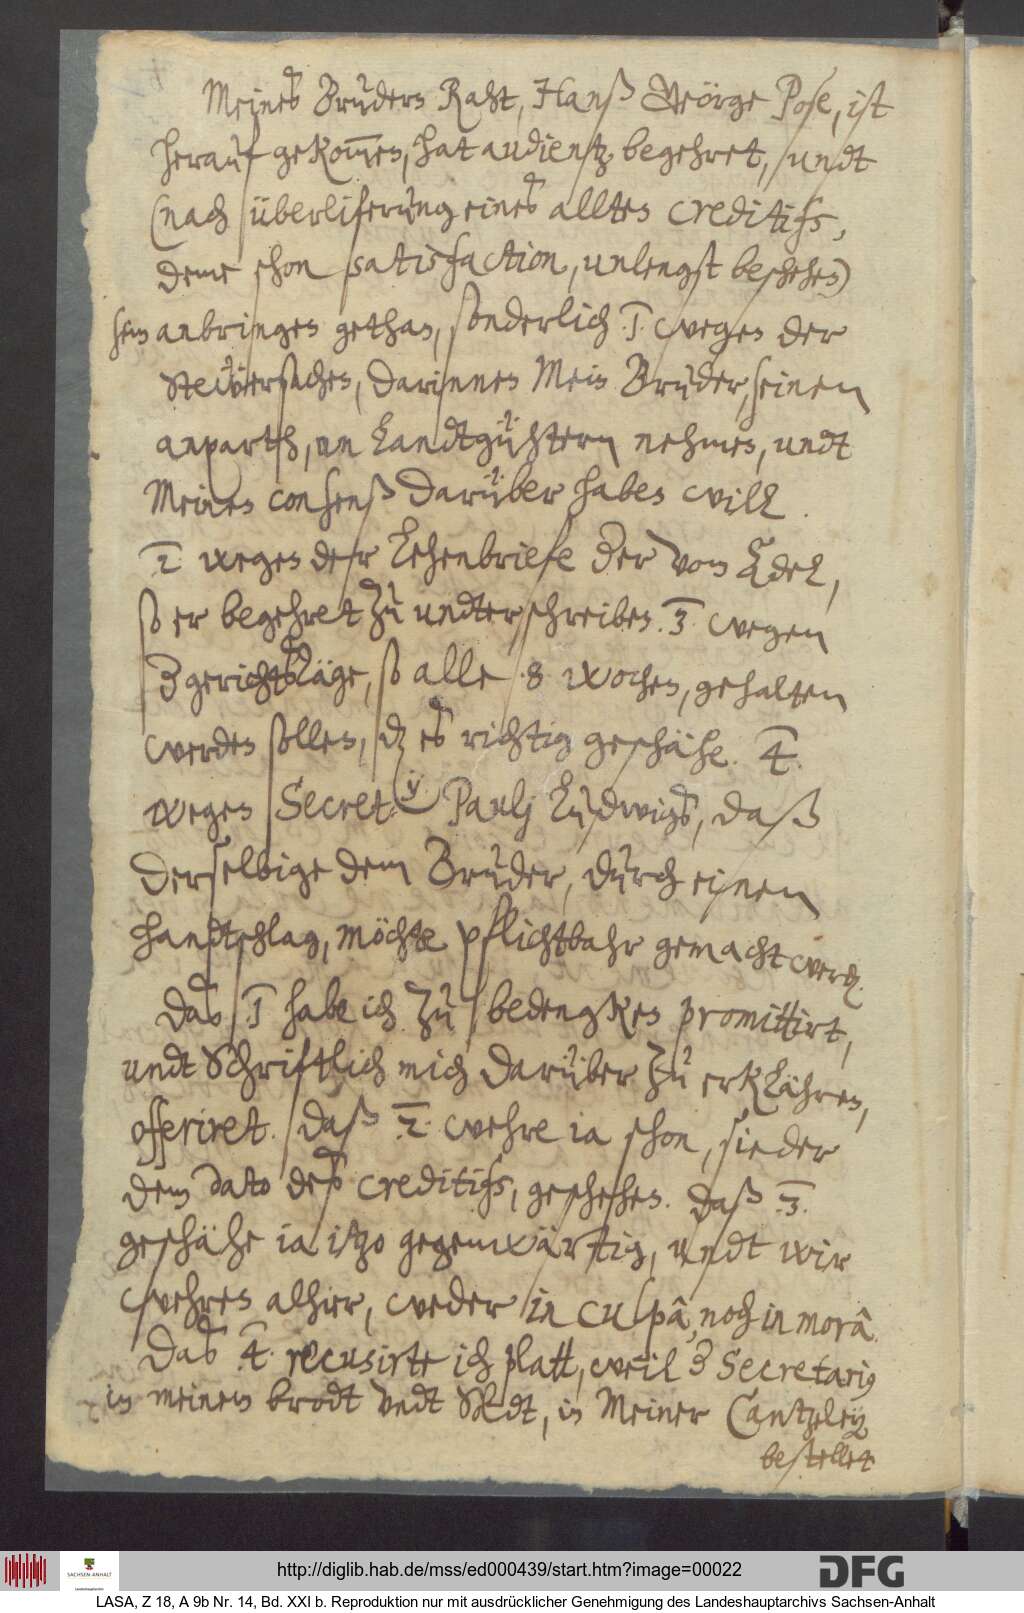 Meines Bruders Raht, Hanß George Pose, ist
herauf gekommen, hat audientz begehret, undt
(nach überliferung eines allten creditifs,
deme schon satisfaction, unlengst beschehen)
sein anbringen gethan, sonderlich .1. wegen der
Steüersachen, darinnen Mein Bruder, seinen
anparth, an Landtgühtern nehmen, undt
Meinen consenß darüber haben will.
.2. wegen der Lehenbriefe der vom Adel,
so er begehret zu undterschreiben. 3. wegen
d gerichtstäge, so alle .8. wochen, gehalten
werden sollen, dz es richtig geschähe. 4.
wegen Secret: Paulj Ludwigs, daß
derselbige dem Bruder, durch einen
handtschlag, möchte pflichtbahr gemacht werd.
Das 1 habe ich zu bedengken promittirt,
undt Schriftlich mich darüber zu erklähren,
offeriret. daß .2. wehre ia schon, sieder
dem dato des creditifs, geschehen. daß .3.
geschähe ia itzo gegenwärtig, undt wir
wehren alhier, weder in culpâ, noch in morâ.
Das .4. recusirte ich platt, weil d Secretarius
in meinem brodt undt Aydt, in Meiner Cantzeley
bestellet
http://diglib.hab.de/mss/ed000439/start.htm?image=00022
SACHSEN-ANHALT
Landeshauptarchiv
DFG
LASA, Z 18, A 9b Nr. 14, Bd. XXI b. Reproduktion nur mit ausdrücklicher Genehmigung des Landeshauptarchivs Sachsen-Anhalt